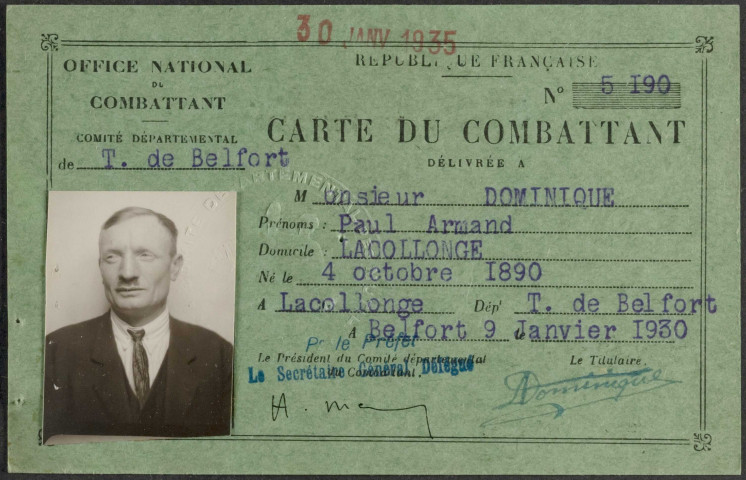 30 JANV 1935
OFFICE NATIONAL
DU
COMBATTANT
COMITÉ DÉPARTEMENTAL
de T. de Belfort
RÉPUBLIQUE FRANÇAISE
N° 5 I90
CARTE DU COMBATTANT
DÉLIVRÉE A
Monsieur DOMINIQUE
Prénoms : Paul Armand
Domicile : LACOLLONGE
Né le 4 octobre I890
A Lacollonge Dépt T. de Belfort
A Belfort 9 le Janvier I930
Pr le Préfet
Le Président du Comité départemental
du Combattant.
Le Secrétaire Général Délégué
Le Titulaire.
Dominique